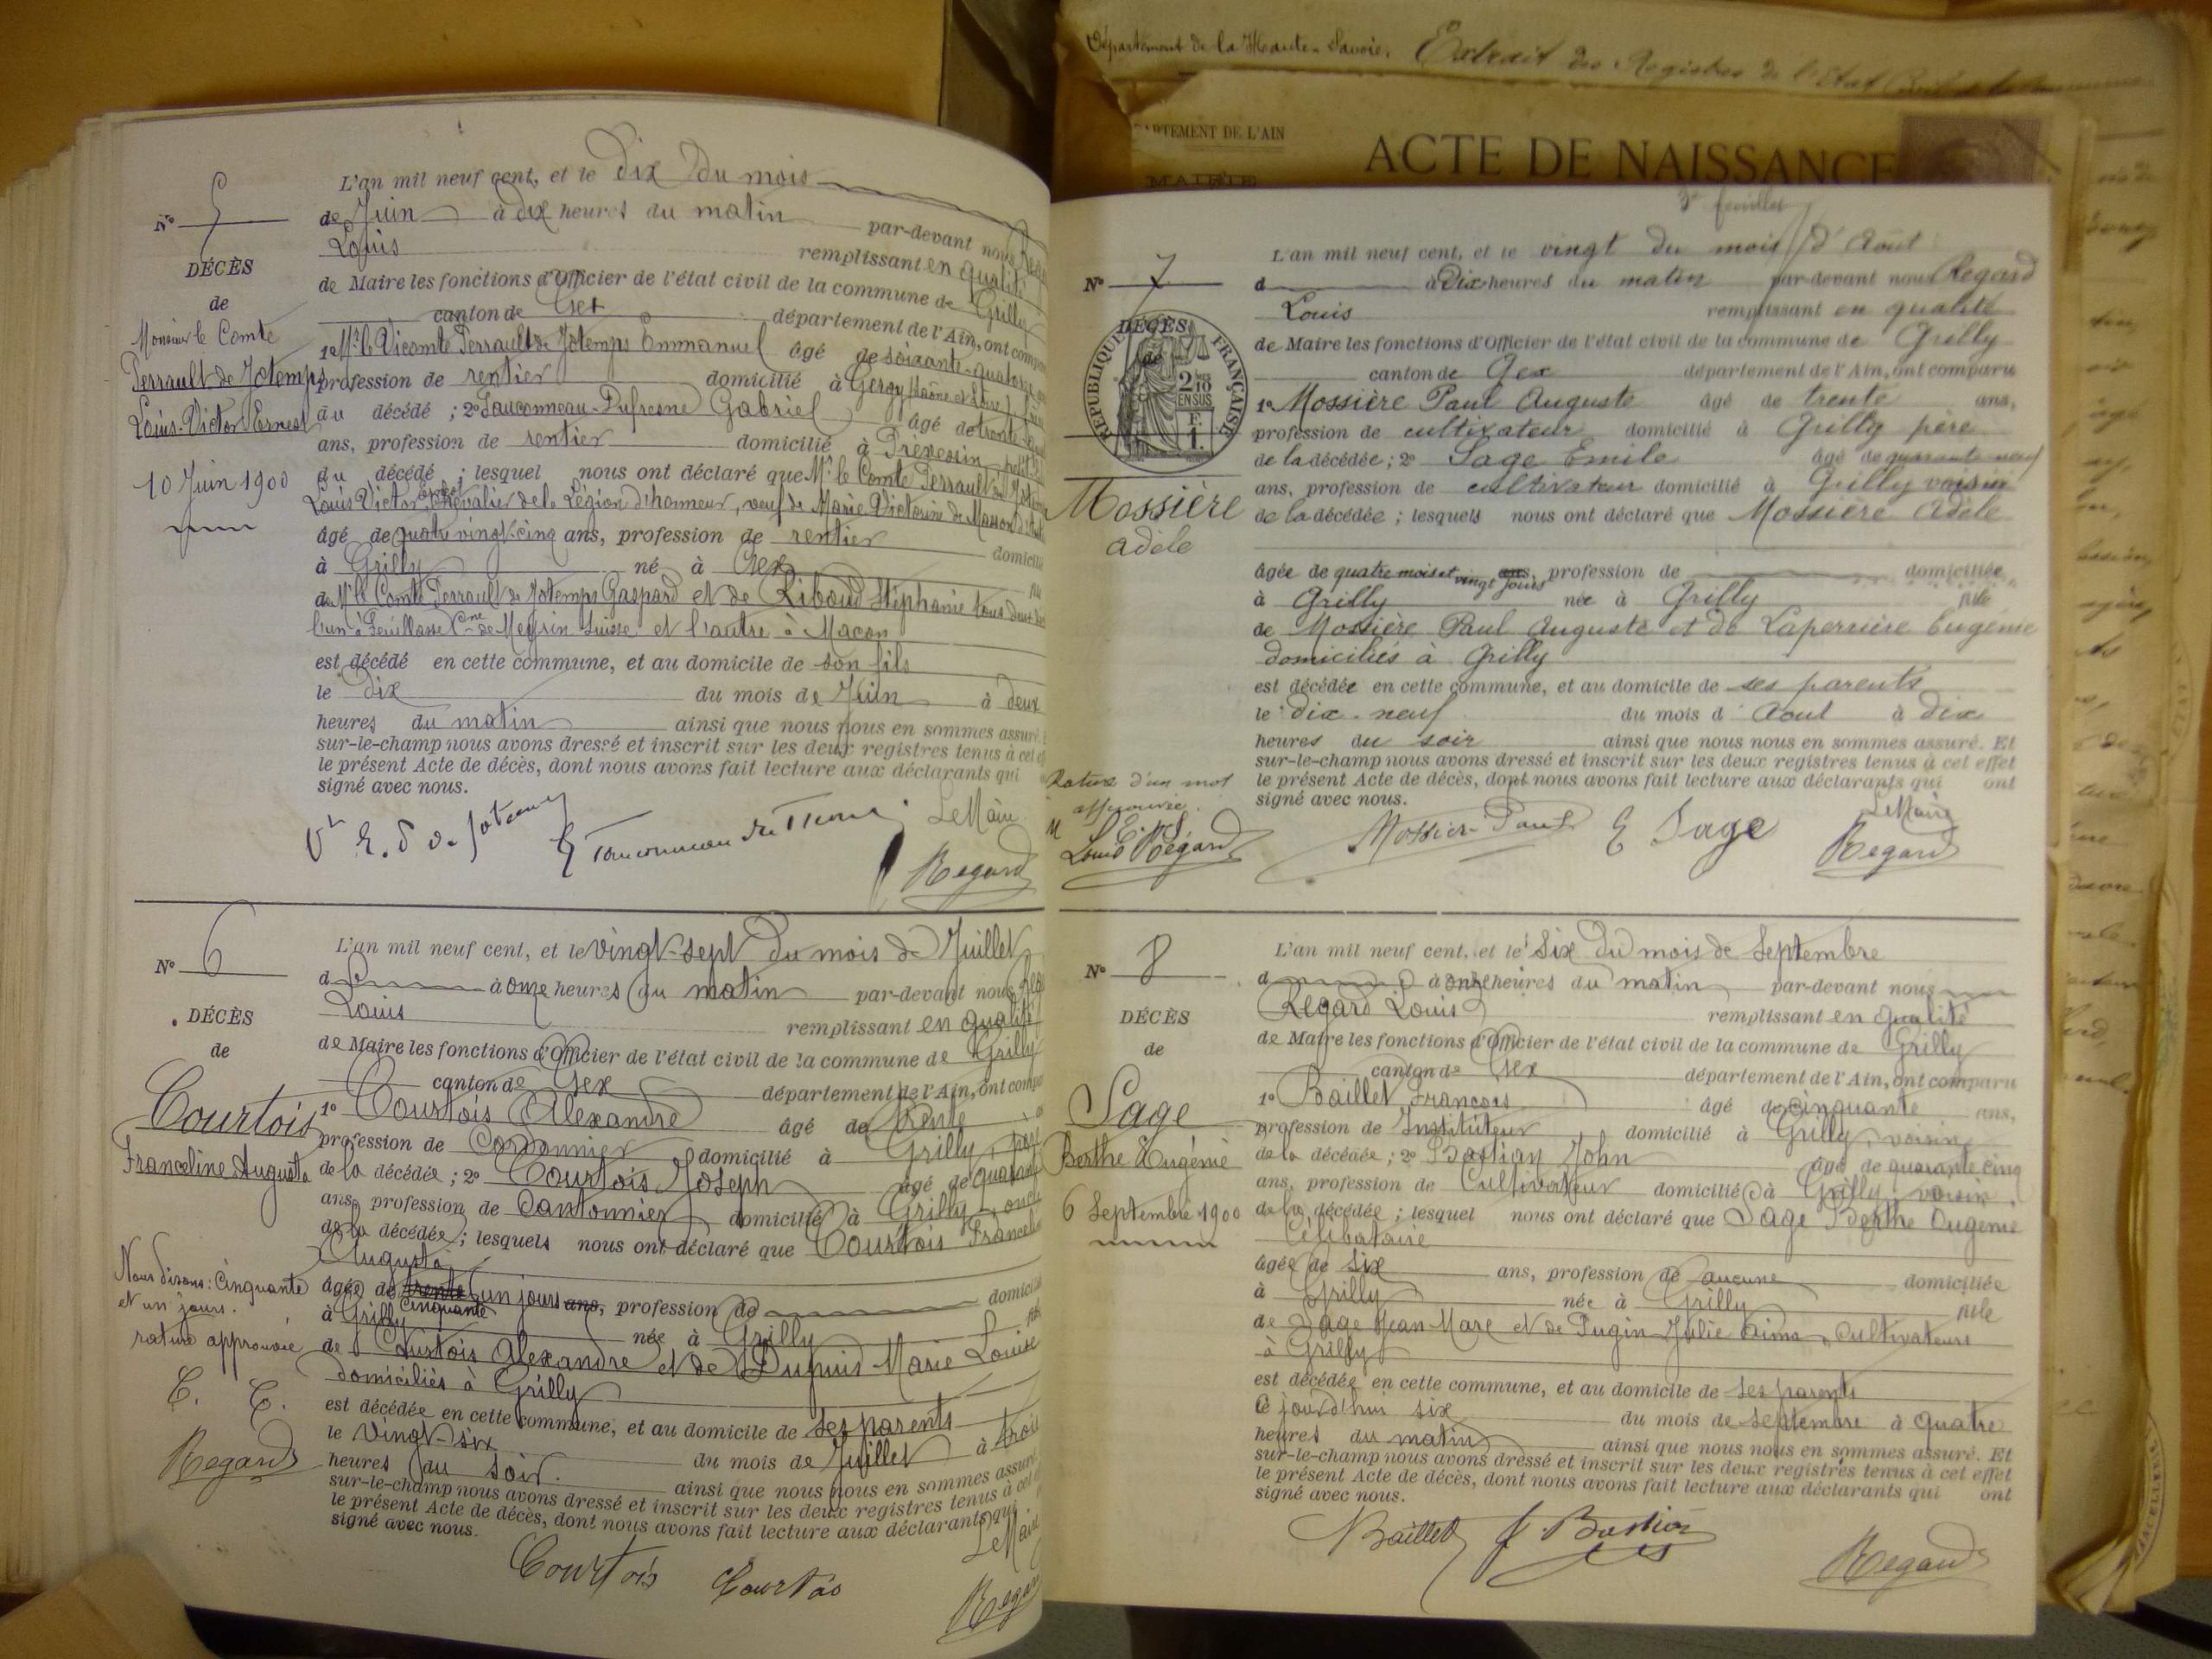 Département de la Haute-Savoie. Extrait des Registres de l'Etat Civil de la
DÉPARTEMENT DE L'AIN
MAIRIE
ACTE DE NAISSANCE
N° 5
DÉCÈS
de
Monsieur le Comte
Perrault de Jotemps
Louis-Victor-Ernest
10 Juin 1900
L'an mil neuf cent, et le Dix Du mois
de Juin à dix heures du matin par-devant nous
Louis remplissant en qualité
de Maire les fonctions d'Officier de l'état civil de la commune de Grilly
canton de Gex département de l'Ain, ont
1° Mr le Vicomte Perrault de Jotemps Emmanuel âgé de soixante-quatorze
profession de rentier domicilié à Gergy (Saône et Loire)
du décédé ; 2° Fauconneau-Dufresne Gabriel âgé de trente
ans, profession de rentier domicilié à Prévessin, petit
du décédé ; lesquel nous ont déclaré que Mr le Comte Perrault de
Louis Victor Ernest Chevalier de la Légion d'honneur, veuf de Marie Victorine de Masson
âgé de quatre vingt-cinq ans, profession de rentier
à Grilly né à Gex
de Mr le Comte Perrault de Jotemps Gaspard et de Riboud Stéphanie tous deux
l'un à Feuillasse Cne de Meyrin Suisse et l'autre à Macon
est décédé en cette commune, et au domicile de son fils
le dix du mois de Juin à deux
heures du matin ainsi que nous nous en sommes assuré.
sur-le-champ nous avons dressé et inscrit sur les deux registres tenus à cet
le présent Acte de décès, dont nous avons fait lecture aux déclarants qui
signé avec nous.
Le Maire
Regard
N° 6
DÉCÈS
de
Courtois
Franceline Augusta
Nous disons : Cinquante
et un jours.
rature approuvée
C. C.
Regard
L'an mil neuf cent, et le vingt-sept Du mois de Juillet
d à onze heures du matin par-devant nous
Louis remplissant en qualité
de Maire les fonctions d'Officier de l'état civil de la commune de Grilly
canton de Gex département de l'Ain, ont
1° Courtois Alexandre âgé de trente
profession de Cordonnier domicilié à Grilly, père
de la décédée ; 2° Courtois Joseph âgé de
ans, profession de Cantonnier domicilié à Grilly, oncle
de la décédée ; lesquels nous ont déclaré que Courtois
Augusta
âgée de trente un jours ans, profession de
cinquante
à Grilly née à Grilly
de Courtois Alexandre et de Dupuis Marie Louise
domiciliés à Grilly
est décédée en cette commune, et au domicile de ses parents
le Vingt-six du mois de Juillet à trois
heures du soir. ainsi que nous nous en sommes assuré
sur-le-champ nous avons dressé et inscrit sur les deux registres tenus à cet
le présent Acte de décès, dont nous avons fait lecture aux déclarants qui
signé avec nous.
Le Maire
Courtois Courtois
Regard
3e feuillet
N° 7
DÉCÈS
de
RÉPUBLIQUE FRANÇAISE
2/10 EN SUS
Mossière
Adèle
Rature d'un mot
approuvée.
M P E. S
Louis Regard
L'an mil neuf cent, et le vingt du mois d'Août
d à Dix heures du matin par-devant nous Regard
Louis remplissant en qualité
de Maire les fonctions d'Officier de l'état civil de la commune de Grilly
canton de Gex département de l'Ain, ont comparu
1° Mossière Paul Auguste âgé de trente ans,
profession de cultivateur domicilié à Grilly père
de la décédée ; 2° Sage Emile âgé de quarante neuf
ans, profession de cultivateur domicilié à Grilly voisin
de la décédée ; lesquels nous ont déclaré que Mossière Adèle
âgée de quatre mois et vingt jours ans, profession de domiciliée
à Grilly née à Grilly fille
de Mossière Paul Auguste et de Laperrière Eugénie
domiciliés à Grilly
est décédée en cette commune, et au domicile de ses parents
le dix-neuf du mois d'Aout à dix
heures du soir ainsi que nous nous en sommes assuré. Et
sur-le-champ nous avons dressé et inscrit sur les deux registres tenus à cet effet
le présent Acte de décès, dont nous avons fait lecture aux déclarants qui ont
signé avec nous.
Le Maire
Mossier Paul E Sage Regard
N° 8
DÉCÈS
de
Sage
Berthe Eugénie
6 Septembre 1900
L'an mil neuf cent, et le Six Du mois de Septembre
d à onze heures du matin par-devant nous
Regard Louis remplissant en qualité
de Maire les fonctions d'Officier de l'état civil de la commune de Grilly
canton de Gex département de l'Ain, ont comparu
1° Baillet François âgé de cinquante ans,
profession de Instituteur domicilié à Grilly, voisin
de la décédée ; 2° Bastian John âgé de quarante cinq
ans, profession de Cultivateur domicilié à Grilly, voisin.
de la décédée ; lesquel nous ont déclaré que Sage Berthe Eugénie
Célibataire
âgée de six ans, profession de aucune domiciliée
à Grilly née à Grilly fille
de Sage Jean Marc et de Pugin Julie Aima, Cultivateurs
à Grilly
est décédée en cette commune, et au domicile de ses parents
Ce jourd'hui six du mois de septembre à quatre
heures du matin ainsi que nous nous en sommes assuré. Et
sur-le-champ nous avons dressé et inscrit sur les deux registres tenus à cet effet
le présent Acte de décès, dont nous avons fait lecture aux déclarants qui ont
signé avec nous.
Baillet J Bastian Regard